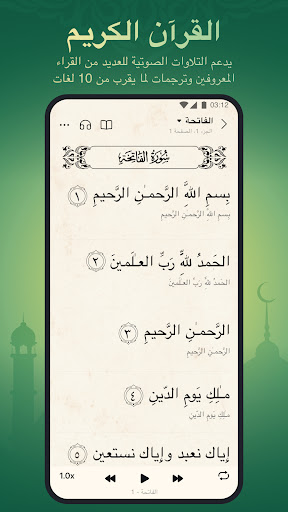 القرآن الكريم
يدعم التلاوات الصوتية للعديد من القراء
المعروفين وترجمات لما يقرب من 10 لغات
03:12
الفاتحة
الجزء 1، الصفحة 1
سُورَةُ الفَاتِحَةِ
بِسمِ اللَّهِ الرَّحمـٰنِ الرَّحيمِ ١
بِسمِ اللَّهِ الرَّحمـٰنِ الرَّحيمِ
الحَمدُ لِلَّهِ رَبِّ العـٰلَمينَ ٢
الحَمدُ لِلَّهِ رَبِّ العـٰلَمينَ
الرَّحمـٰنِ الرَّحيمِ ٣
الرَّحمـٰنِ الرَّحيمِ
مـٰلِكِ يَومِ الدّينِ ٤
مـٰلِكِ يَومِ الدّينِ
إِياك نَعبد وإِياك نَستعين ٥
1.0x
الفاتحة - 1